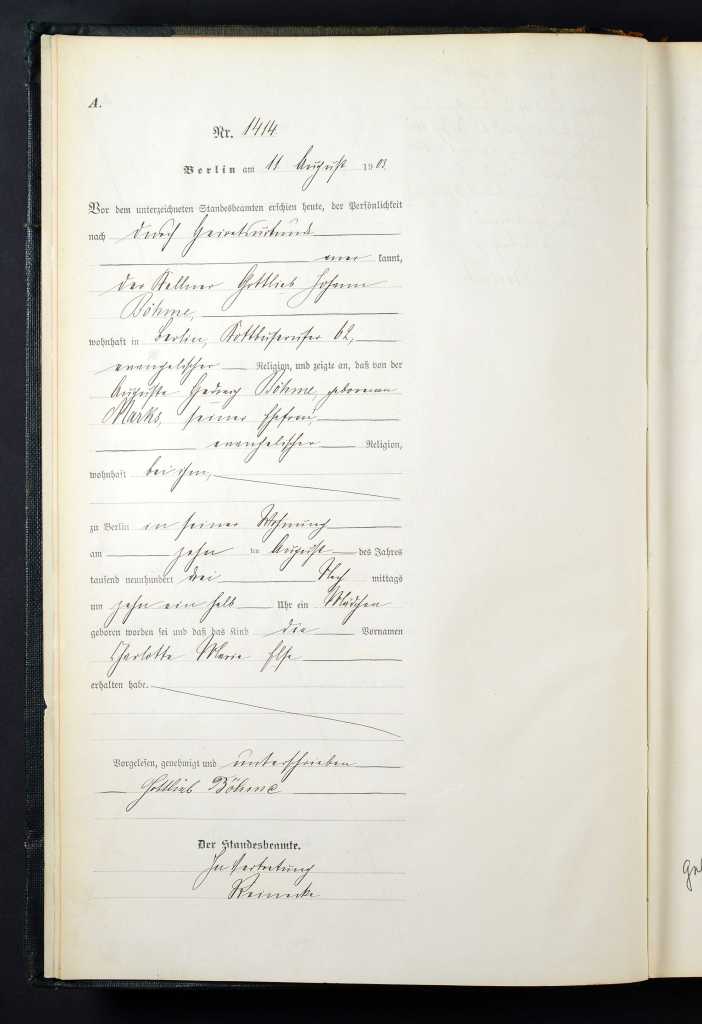 A.
Nr. 1414
Berlin am 11 August 1903.
Vor dem unterzeichneten Standesbeamten erschien heute, der Persönlichkeit
nach durch Heiratsurkunde
aner kannt,
der Kellner Gottlieb Johann
Böhme,
wohnhaft in Berlin, Kottbuserufer 62,
evangelischer Religion, und zeigte an, daß von der
Auguste Hedwig Böhme, geborenen
Marks, seiner Ehefrau,
evangelischer Religion,
wohnhaft bei ihm,
zu Berlin in seiner Wohnung
am zehn ten August des Jahres
tausend neunhundert drei Nach mittags
um zehn ein halb Uhr ein Mädchen
geboren worden sei und daß das Kind die Vornamen
Charlotte Marie Else
erhalten habe.
Vorgelesen, genehmigt und unterschrieben
Gottlieb Böhme
Der Standesbeamte.
In Vertretung
Reinecke